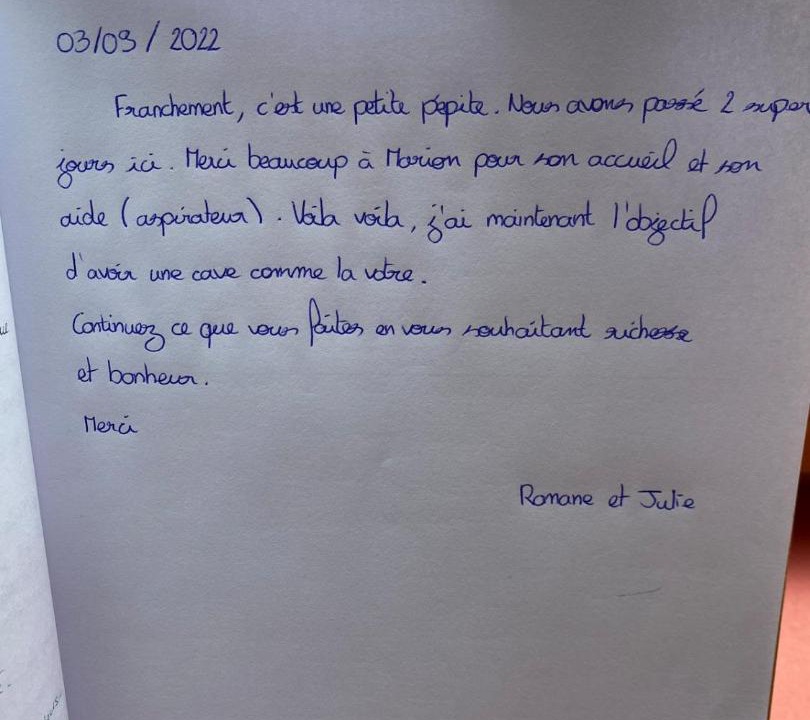 03/09/2022
Franchement, c'est une petite pépite. Nous avons passé 2 super
jours ici. Merci beaucoup à Marion pour son accueil et son
aide (aspirateur). Voila voila, j'ai maintenant l'objectif
d'avoir une cave comme la votre.
Continuez ce que vous faites en vous souhaitant richesse
et bonheur.
Merci
Romane et Julie